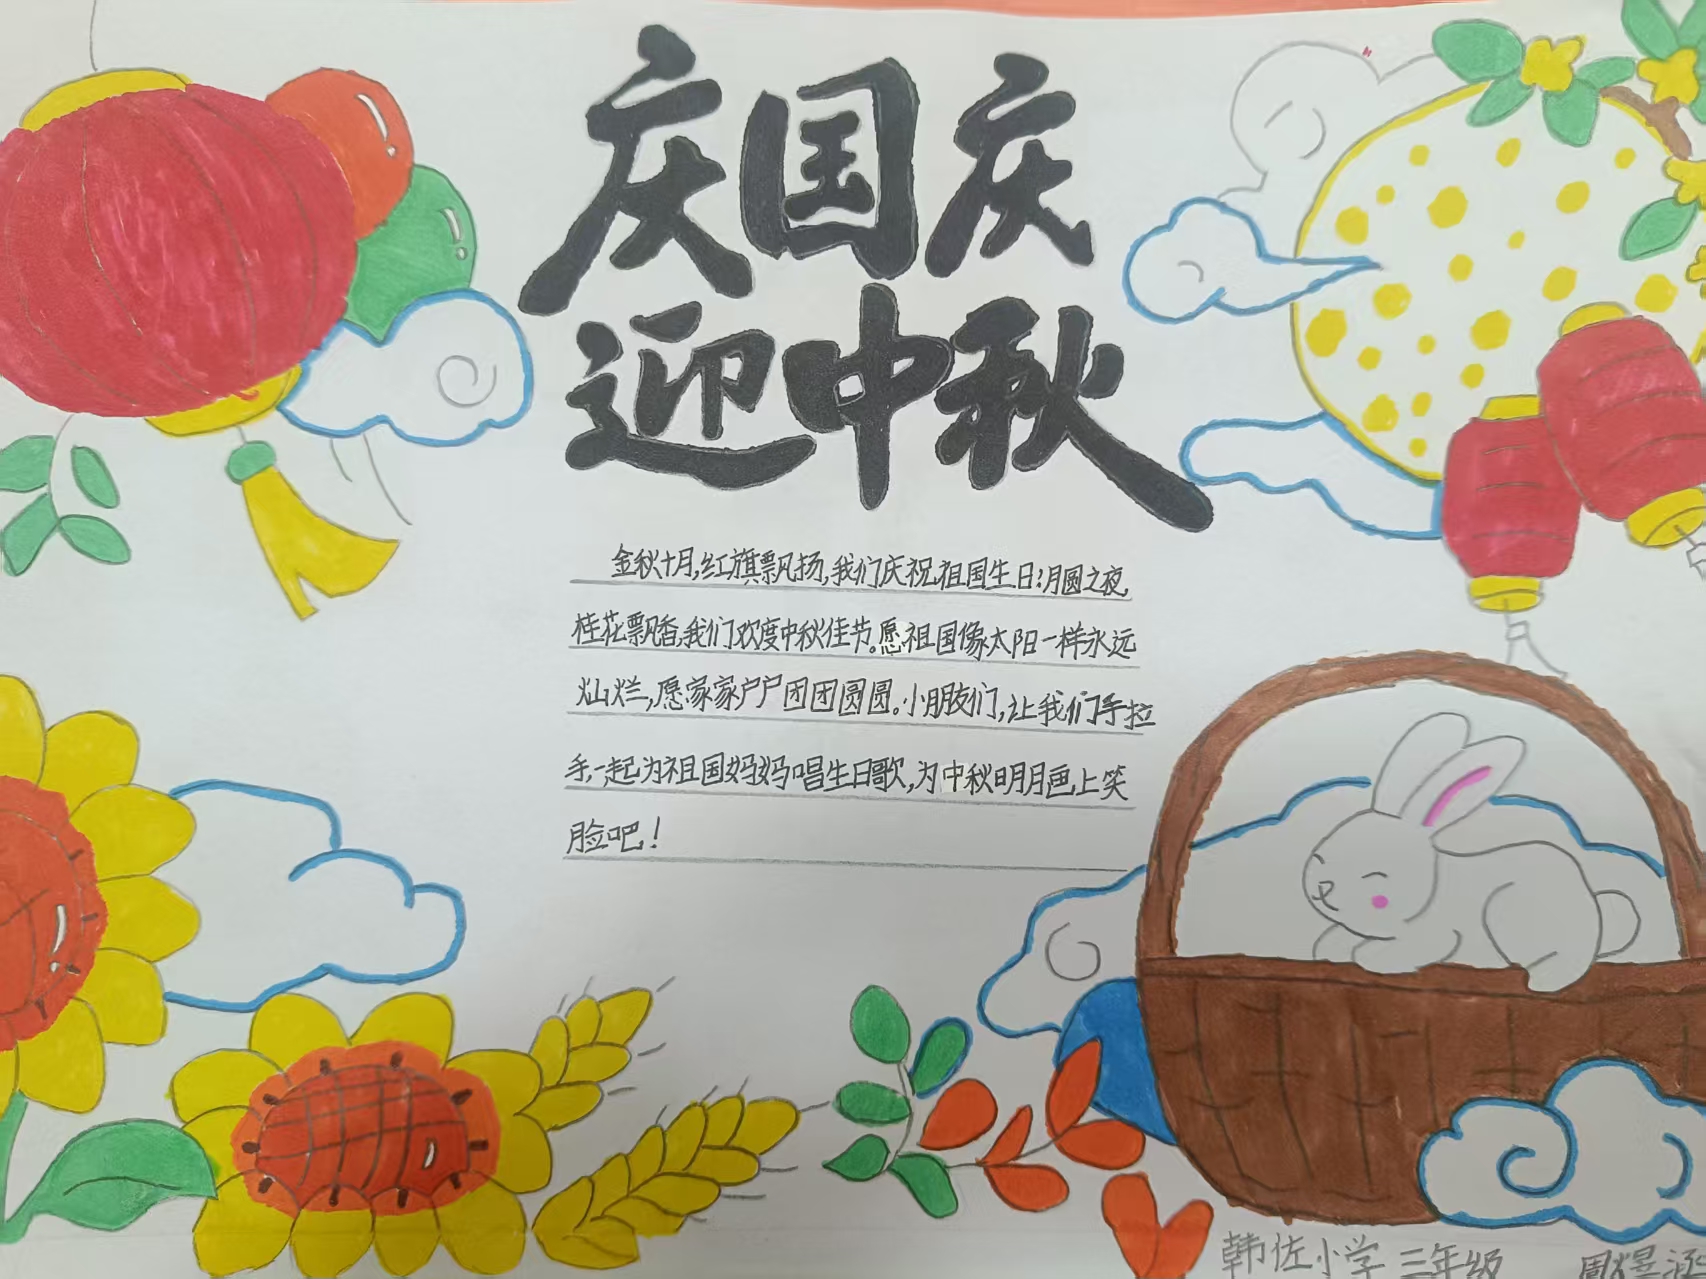 庆国庆
迎中秋
金秋十月,红旗飘扬,我们庆祝祖国生日!月圆之夜,
桂花飘香,我们欢度中秋佳节。愿祖国像太阳一样永远
灿烂,愿家家户户团团圆圆。小朋友们,让我们手拉
手,一起为祖国妈妈唱生日歌,为中秋明月画上笑
脸吧!
韩佐小学 三年级 周煜涵